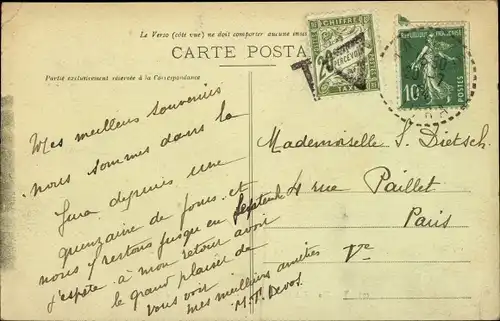 Le Verso (côté vue) ne doit comporter aucune
CARTE POSTA
Partie exclusivement réservée à la Correspondance
CHIFFRE
20 CENTIMES
A PERCEVOIR
TAXE
T
REPUBLIQUE FRANÇAISE
10 c
POSTES
Mes meilleurs souvenirs
nous sommes dans le
Jura depuis une
quinzaine de jours et
nous y restons jusqu'en Septembre
j'espère à mon retour avoir
le grand plaisir de
vous voir
mes meilleures amitiés
M.T. Devos.
Mademoiselle S. Dietsch
4 rue Paillet
Paris
Ve